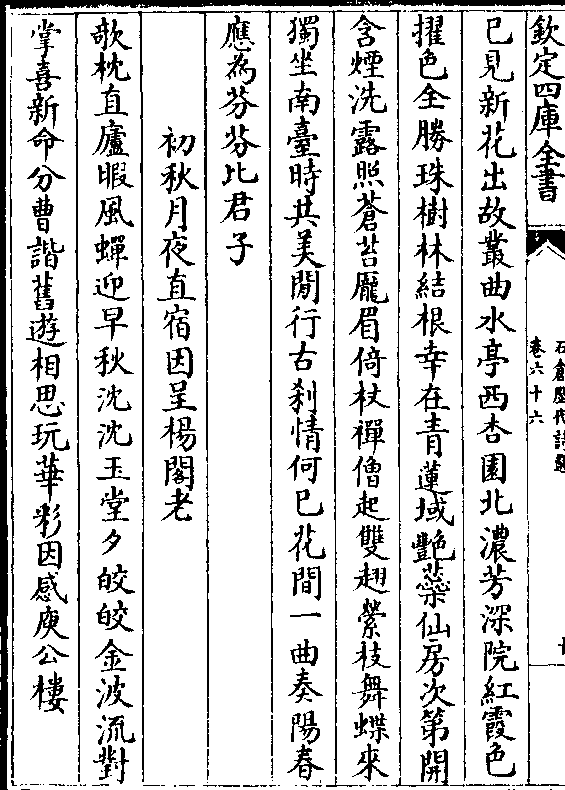 欽定四庫全書
石倉歷代詩選
卷六十六
已見新花出故叢曲水亭西杏園北濃芳深院紅霞色
擢色全勝珠樹林結根幸在青蓮域艷蘂仙房次第開
含煙洗露照蒼苔龐眉倚杖禪僧起雙翅縈枝舞蝶來
獨坐南臺時共美閒行古刹情何已花間一曲奏陽春
應為芬芬比君子
初秋月夜直宿因呈楊閣老
欹枕直廬暇風蟬迎早秋沈沈玉堂夕皎皎金波流對
掌喜新命分曹諧舊遊相思玩華彩因感庾公樓